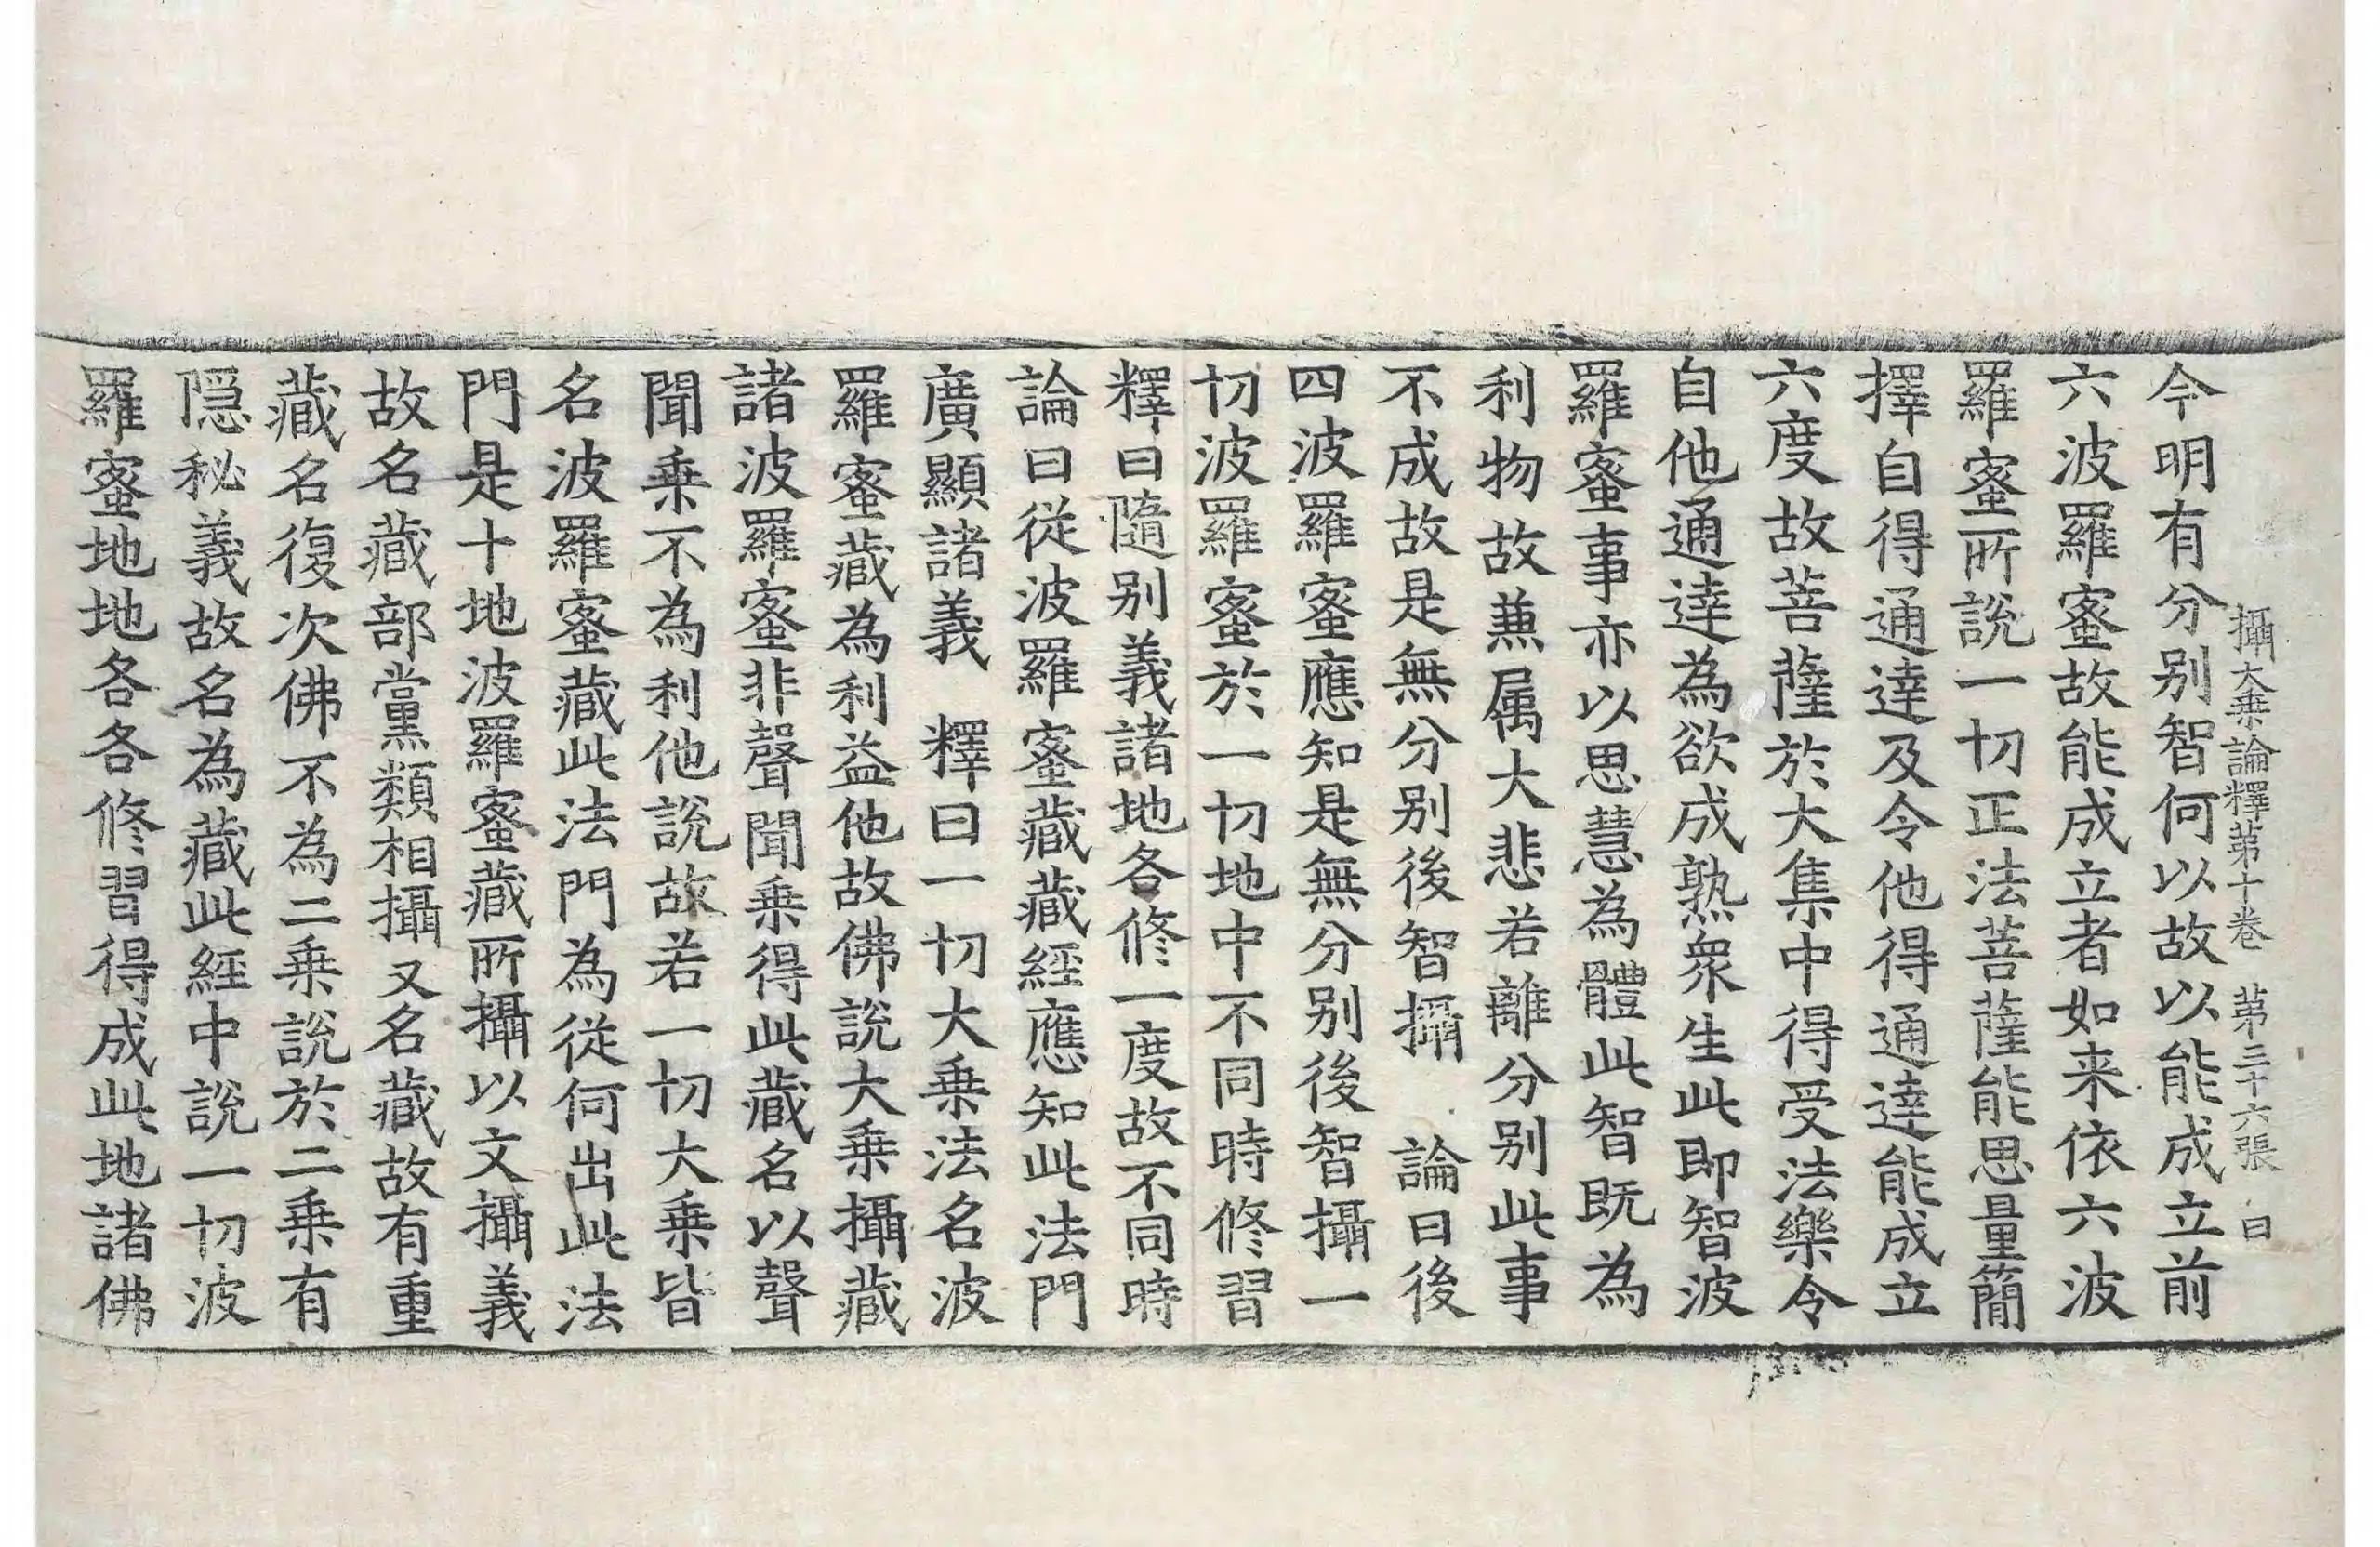 攝大乗論釋苐十卷 苐三十六張 曰
今明有分别智何以故以能成立前
六波羅蜜故能成立者如来依六波
羅蜜所說一切正法菩薩能思量簡
擇自得通達及令他得通達能成立
六度故菩薩於大集中得受法樂令
自他通達為欲成熟衆生此即智波
羅蜜事亦以思慧為體此智既為
利物故兼属大悲若離分别此事
不成故是無分别後智攝 論曰後
四波羅蜜應知是無分别後智攝一
切波羅蜜於一切地中不同時修習
釋曰隨别義諸地各修一度故不同時
論曰從波羅蜜藏藏經應知此法門
廣顯諸義 釋曰一切大乗法名波
羅蜜藏為利益他故佛說大乗攝藏
諸波羅蜜非聲聞乗得此藏名以聲
聞乗不為利他說故若一切大乗皆
名波羅蜜藏此法門為從何出此法
門是十地波羅蜜藏所攝以文攝義
故名藏部黨類相攝又名藏故有重
藏名復次佛不為二乗說於二乗有
隠秘義故名為藏此經中說一切波
羅蜜地地各各修習得成此地諸佛